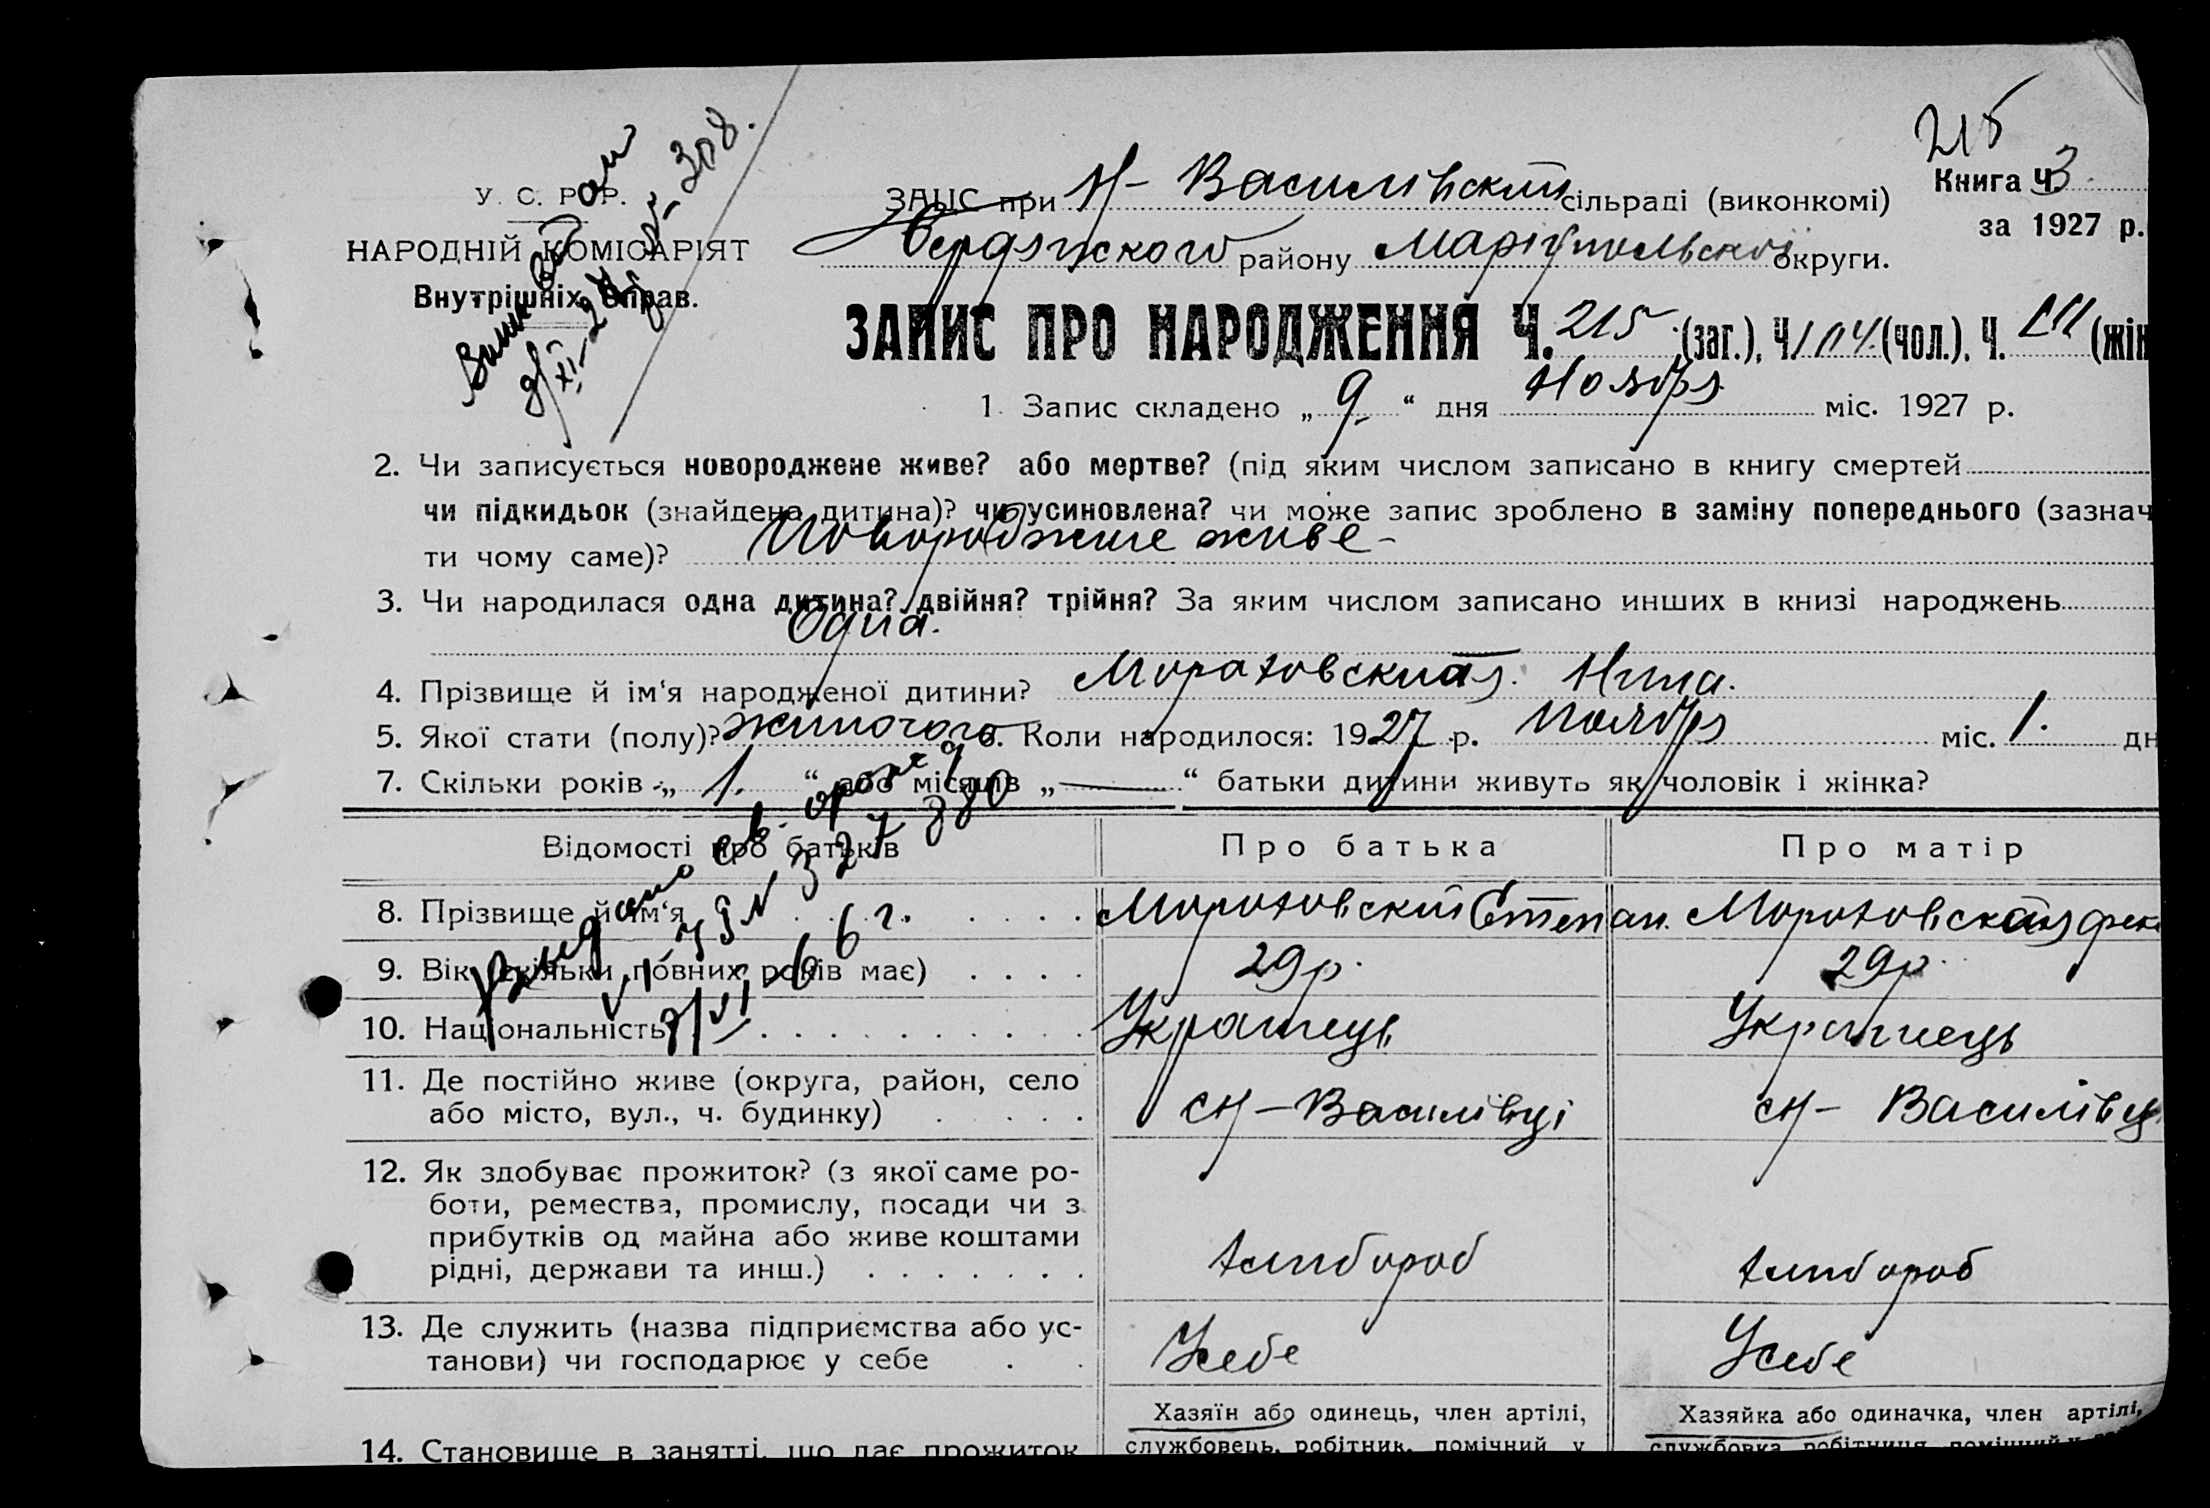 215
У. С. Р. Р.
НАРОДНІЙ КОМІСАРІЯТ
Внутрішніх Справ.
ЗАЦС при Н-Василівскій сільраді (виконкомі)
Бердянского району Маріупольской округи.
Книга Ч. 3
за 1927 р.
ЗАПИС ПРО НАРОДЖЕННЯ Ч. 215 (заг.), Ч. 104 (чол.), Ч. 111 (жін
1. Запис складено „ 9 “ дня Ноября міс. 1927 р.
2. Чи записується новороджене живе? або мертве? (під яким числом записано в книгу смертей
чи підкидьок (знайдена дитина)? чи усиновлена? чи може запис зроблено в заміну попереднього (зазнач
ти чому саме)? Новороджене живе -
3. Чи народилася одна дитина? двійня? трійня? За яким числом записано инших в книзі народжень
Одна.
4. Прізвище й ім‘я народженої дитини? Мороховская Нина.
5. Якої стати (полу)? жиночого 6. Коли народилося: 1927 р. Ноября міс. 1. дн
7. Скільки років „ 1. “ або місяців „ — “ батьки дитини живуть як чоловік і жінка?
Відомості про батьків Про батька Про матір
8. Прізвище й ім‘я Мороховский Степан. Мороховская
9. Вік (скільки повних років має) 29 р. 29 р.
10. Національність Украинець Украинець
11. Де постійно живе (округа, район, село
або місто, вул., ч. будинку) сН-Василівці сН- Василівц
12. Як здобуває прожиток? (з якої саме ро-
боти, ремества, промислу, посади чи з
прибутків од майна або живе коштами
рідні, держави та инш.) хлибороб хлибороб
13. Де служить (назва підприємства або ус-
танови) чи господарює у себе Усебе Усебе
Хазяїн або одинець, член артілі, Хазяйка або одиначка, член артілі,
14. Становище в занятті, що дає прожиток службовець, робітник, помічний у службовка робітниця помічний у